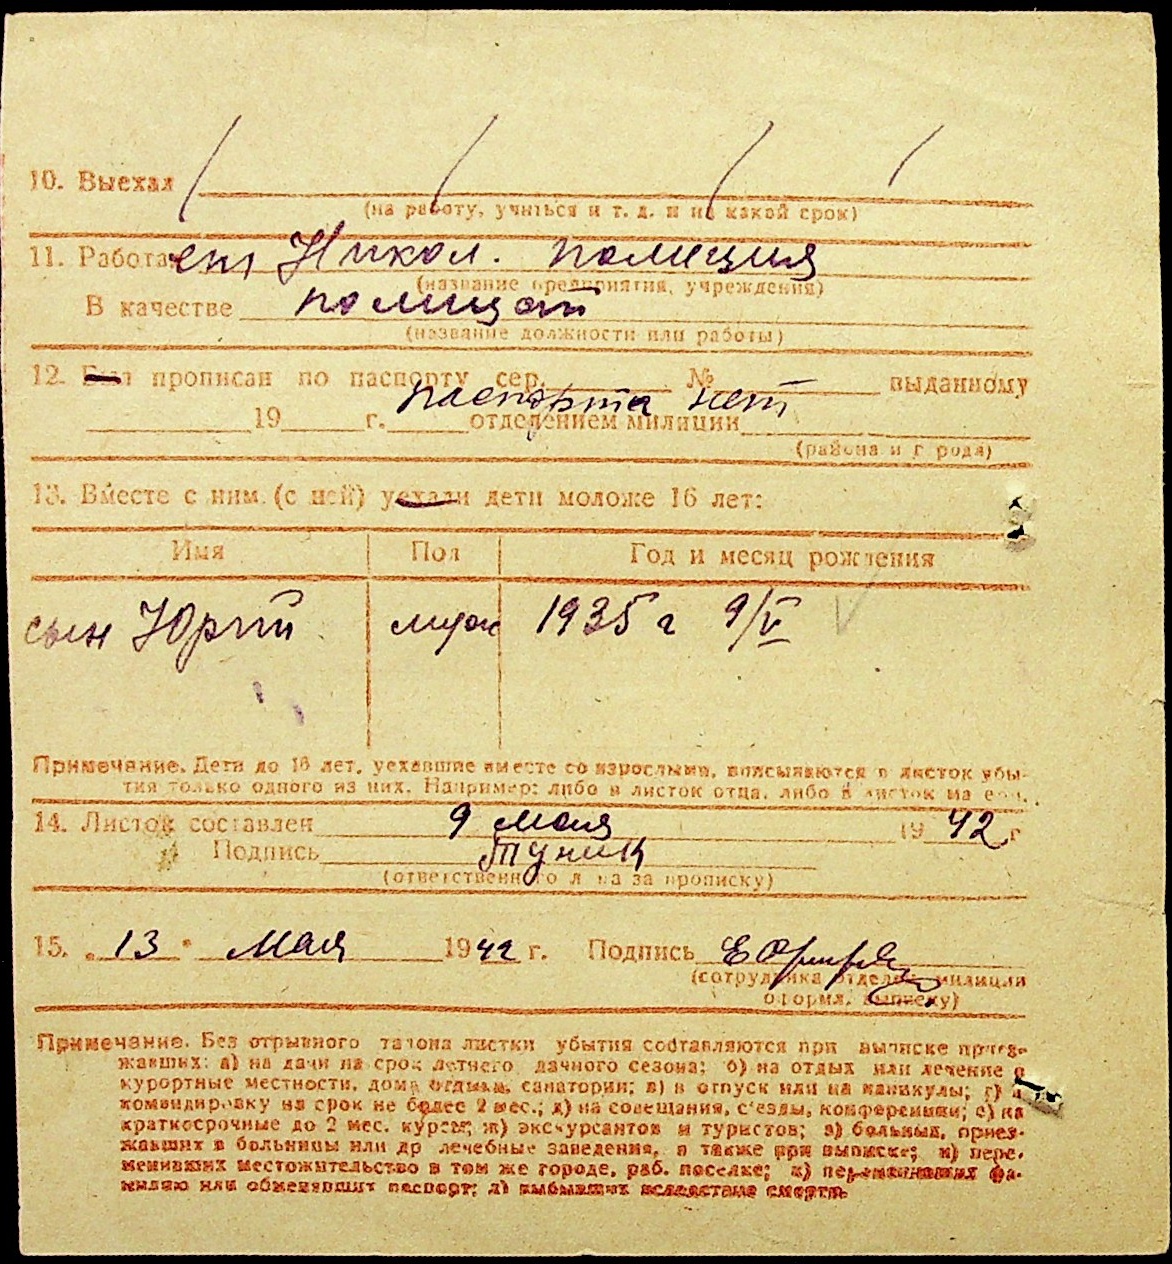 10. Выехал
(на работу, учиться и т. д. и на какой срок)
11. Работает Никол. полиция
(название предприятия, учреждения)
В качестве полицай
(название должности или работы)
12. Был прописан по паспорту сер. № выданному
паспорта нет
19 г. отделением милиции
(района и города)
13. Вместе с ним (с ней) уехали дети моложе 16 лет:
Имя Пол Год и месяц рождения
сын Юрий муж 1935 г 9/V
Примечание. Дети до 16 лет, уехавшие вместе со взрослыми, вписываются в листок убы-
тия только одного из них. Например: либо в листок отца, либо в листок матери.
14. Листок составлен 9 мая 1942 г
Подпись Туник
(ответственного лица за прописку)
15. „13" мая 1942 г. Подпись
(сотрудника отделен. милиции
оформл. выписку)
Примечание. Без отрывного талона листки убытия составляются при выписке приез-
жавших: а) на дачи на срок летнего дачного сезона; б) на отдых или лечение в
курортные местности, дома отдыха, санатории; в) в отпуск или на каникулы; г) в
командировку на срок не более 2 мес.; д) на совещания, с'езды, конференции; е) на
краткосрочные до 2 мес. курсы; ж) экскурсантов и туристов; з) больных, приез-
жавших в больницы или др лечебные заведения, а также при выписке; и) пере-
менивших местожительство в том же городе, раб. поселке; к) переменивших фа-
милию или обменявших паспорт; л) выбывших вследствие смерти.